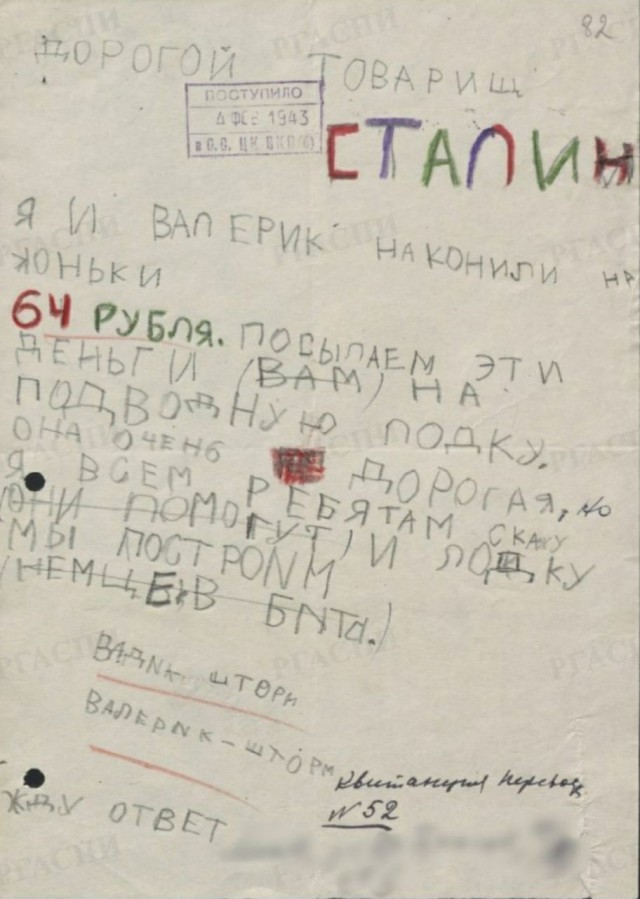 82
ДОРОГОЙ ТОВАРИЩ
ПОСТУПИЛО
4 ФЕВ 1943
в О.С. ЦК ВКП(б)
СТАЛИН
Я И ВАЛЕРИК НАКОПИЛИ НА
КОНЬКИ
64 РУБЛЯ. ПОСЫЛАЕМ ЭТИ
ДЕНЬГИ (ВАМ) НА
ПОДВОДНУЮ ЛОДКУ.
ОНА ОЧЕНЬ ДОРОГАЯ, но
Я ВСЕМ РЕБЯТАМ СКАЖУ
(ОНИ ПОМОГУТ) И ЛОДКУ
МЫ ПОСТРОИМ
(НЕМЦЕВ БИТЬ.)
ВАДИК-ШТОРМ
ВАЛЕРИК-ШТОРМ
ЖДУ ОТВЕТ
Квитанция перевод
N 52
РГАСПИ